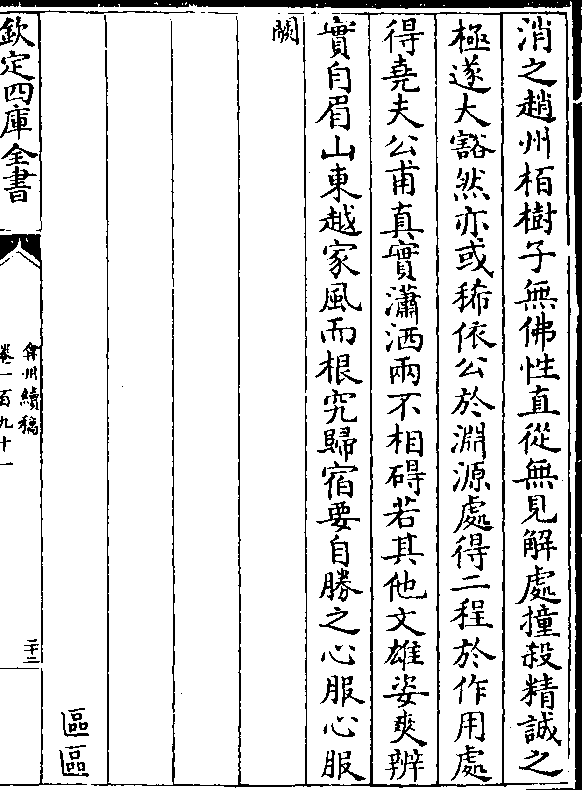 消之趙州栢樹子無佛性直從無見解處撞殺精誠之
極遂大豁然亦或稀依公於淵源處得二程於作用處
得堯夫公甫真實瀟洒兩不相碍若其他文雄姿爽辨
實自眉山東越家風而根究歸宿要自勝之心服心服
闕
區區
欽定四庫全書
弇州續稿
卷一百九十一
二十二